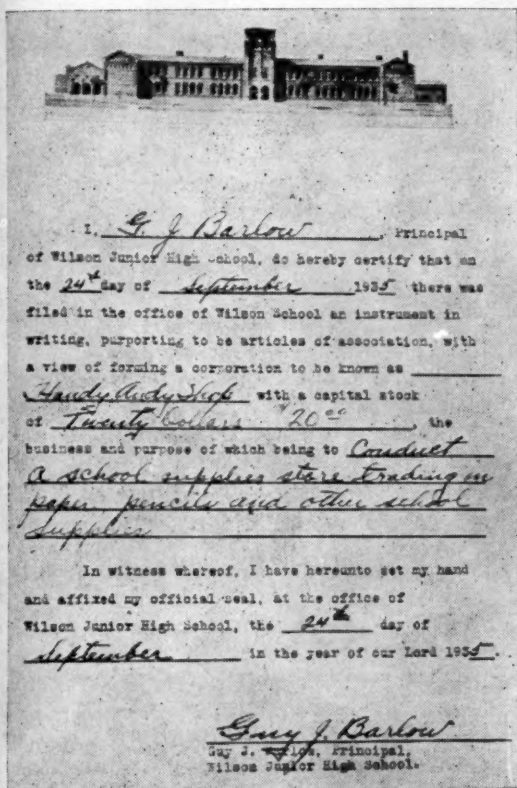 I, G. J Barlow, Principal
of Wilson Junior High School, do hereby certify that on
the 24th day of September 1935 there was
filed in the office of Wilson School an instrument in
writing, purporting to be articles of association, with
a view of forming a corporation to be known as
Handy Andy Shop with a capital stock
of Twenty Dollars $20.00, the
business and purpose of which being to Conduct
a school supplies store trading in
paper pencils and other school
supplies
In witness whereof, I have hereunto set my hand
and affixed my official seal, at the office of
Wilson Junior High School, the 24th day of
September in the year of our Lord 1935.
Guy J. Barlow
Guy J. Barlow, Principal,
Wilson Junior High School.